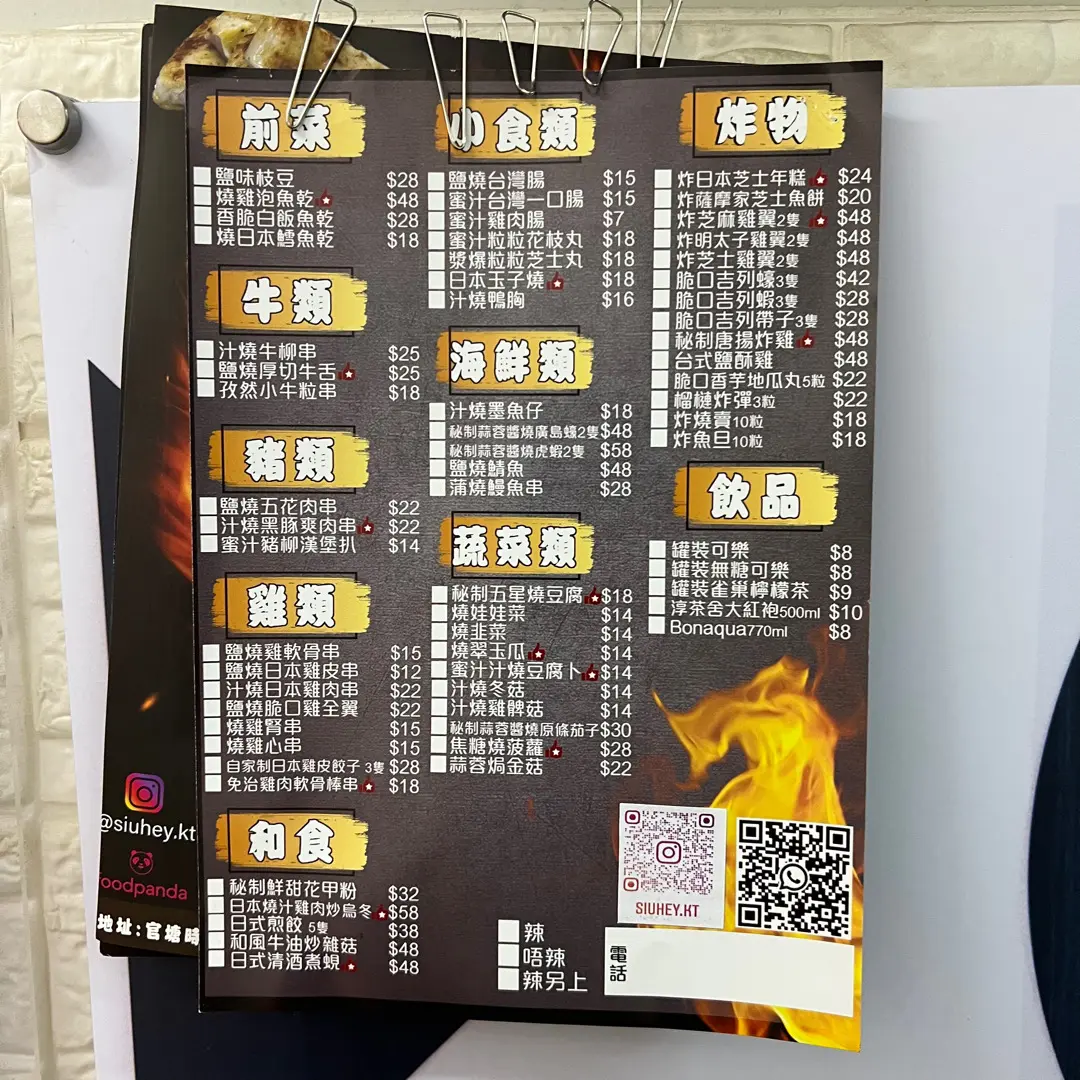 前菜
鹽味枝豆 $28
燒雞泡魚乾 $48
香脆白飯魚乾 $28
燒日本鱈魚乾 $18
牛類
汁燒牛柳串 $25
鹽燒厚切牛舌 $25
孜然小牛粒串 $18
豬類
鹽燒五花肉串 $22
汁燒黑豚爽肉串 $22
蜜汁豬柳漢堡扒 $14
雞類
鹽燒雞軟骨串 $15
鹽燒日本雞皮串 $12
汁燒日本雞肉串 $22
鹽燒脆口雞全翼 $22
燒雞腎串 $15
燒雞心串 $15
自家制日本雞皮餃子 3隻 $28
免治雞肉軟骨棒串 $18
和食
秘制鮮甜花甲粉 $32
日本燒汁雞肉炒烏冬 $58
日式煎餃 5隻 $38
和風牛油炒雜菇 $48
日式清酒煮蜆 $48
小食類
鹽燒台灣腸 $15
蜜汁台灣一口腸 $15
蜜汁雞肉腸 $7
蜜汁粒粒花枝丸 $18
漿爆粒粒芝士丸 $18
日本玉子燒 $18
汁燒鴨胸 $16
海鮮類
汁燒墨魚仔 $18
秘制蒜蓉醬燒廣島蠔2隻 $48
秘制蒜蓉醬燒虎蝦2隻 $58
鹽燒鯖魚 $48
蒲燒鰻魚串 $28
蔬菜類
秘制五星燒豆腐 $18
燒娃娃菜 $14
燒韭菜 $14
燒翠玉瓜 $14
蜜汁汁燒豆腐卜 $14
汁燒冬菇 $14
汁燒雞髀菇 $14
秘制蒜蓉醬燒原條茄子 $30
焦糖燒菠蘿 $28
蒜蓉焗金菇 $22
炸物
炸日本芝士年糕 $24
炸薩摩家芝士魚餅 $20
炸芝麻雞翼2隻 $48
炸明太子雞翼2隻 $48
炸芝士雞翼2隻 $48
脆口吉列蠔3隻 $42
脆口吉列蝦3隻 $28
脆口吉列帶子3隻 $28
秘制唐揚炸雞 $48
台式鹽酥雞 $48
脆口香芋地瓜丸5粒 $22
榴槤炸彈3粒 $22
炸燒賣10粒 $18
炸魚旦10粒 $18
飲品
罐裝可樂 $8
罐裝無糖可樂 $8
罐裝雀巢檸檬茶 $9
淳茶舍大紅袍500ml $10
Bonaqua770ml $8
辣
唔辣
辣另上
SIUHEY.KT
電話
@siuhey.kt
foodpanda
地址:官塘時